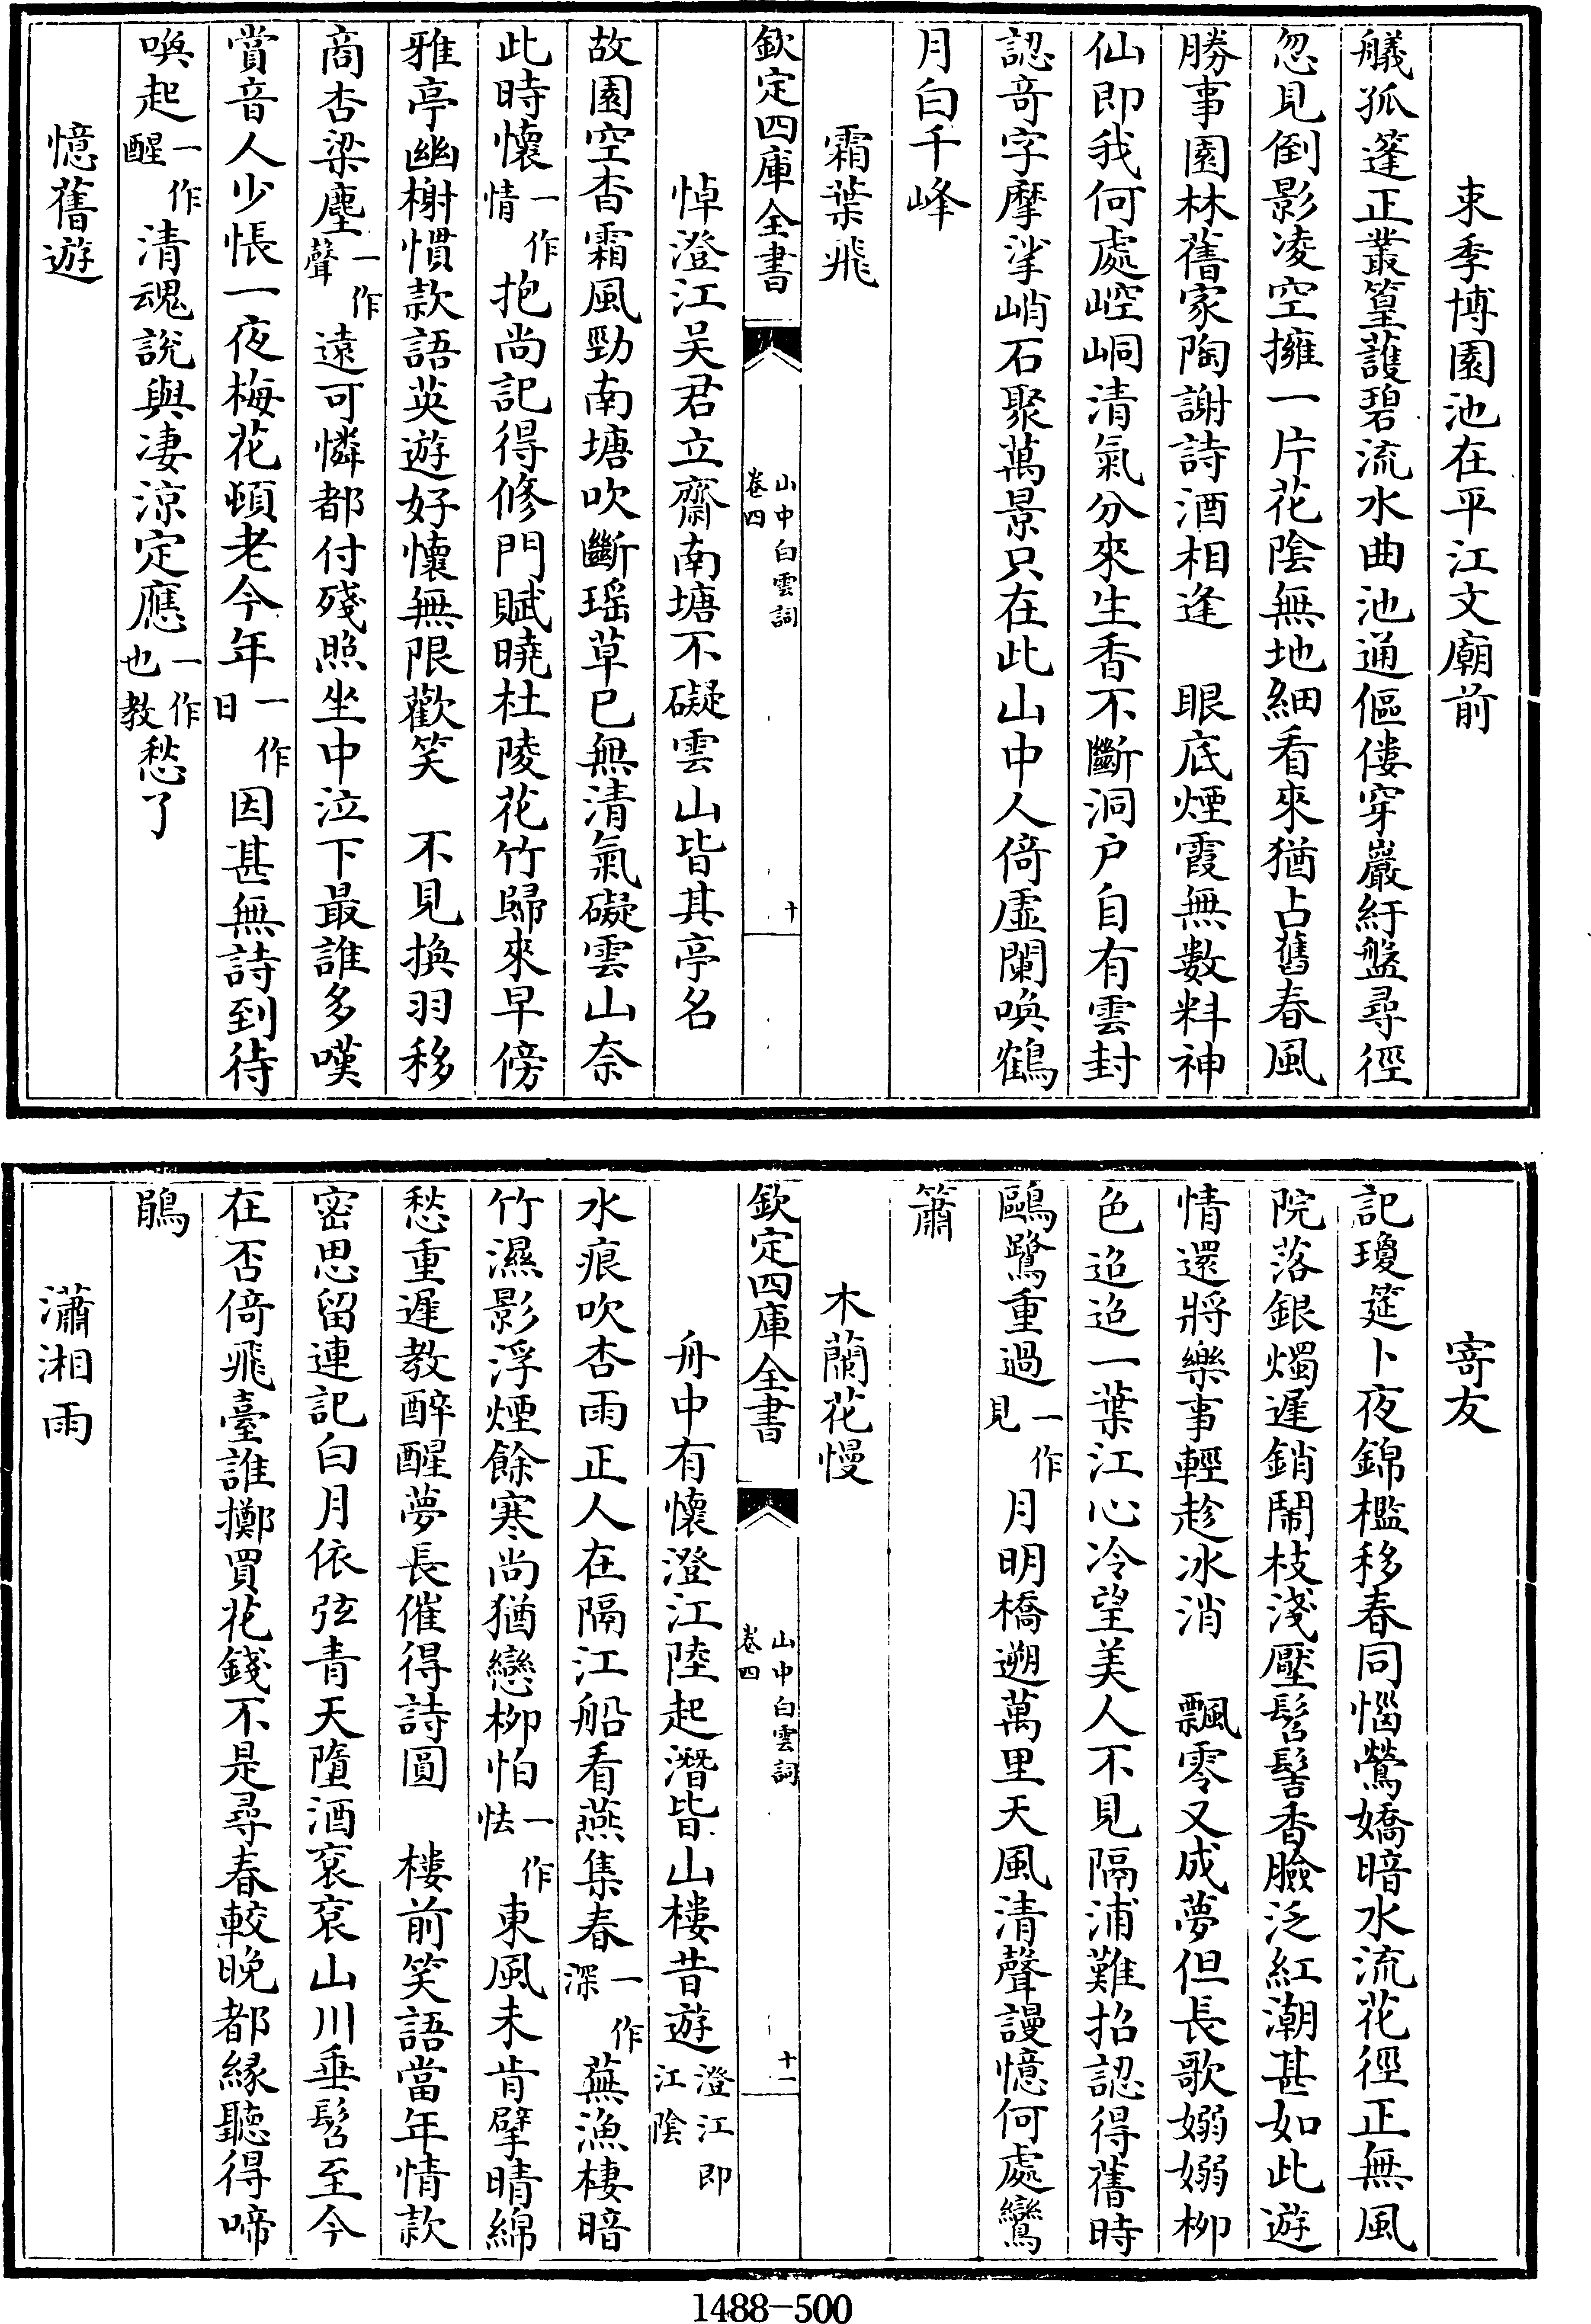 束季博園池在平江文廟前
艤孤篷正叢篁䕶碧流水曲池通傴僂穿巖紆盤尋徑
忽見倒影凌空擁一片花陰無地細看來猶占舊春風
勝事園林舊家陶謝詩酒相逢　眼底煙霞無數料神
仙即我何處崆峒清氣分來生香不斷洞户自有雲封
認竒字摩挲峭石聚萬景只在此山中人倚虛闌喚鶴
月白千峰
霜葉飛
欽定四庫全書
山中白雲詞
卷四
十
悼澄江吳君立齋南塘不礙雲山皆其亭名
故園空杳霜風勁南塘吹斷瑶草已無清氣礙雲山奈
此時懷一作情抱尚記得修門賦曉杜陵花竹歸來早傍
雅亭幽榭慣款語英遊好懷無限歡笑　不見換羽移
商杏梁塵一作聲遠可憐都付殘照坐中泣下最誰多嘆
賞音人少悵一夜梅花頓老今年一作日因甚無詩到待
喚起一作醒清魂說與凄涼定應一作也教愁了
憶舊遊
寄友
記瓊筵卜夜錦檻移春同惱鶯嬌暗水流花徑正無風
院落銀燭遲銷鬧枝淺壓髻髻香臉泛紅潮甚如此遊
情還將樂事輕趁冰消　飄零又成夢但長歌嫋嫋柳
色迢迢一葉江心冷望美人不見隔浦難招認得舊時
鷗鷺重過一作見月明橋遡萬里天風清聲謾憶何處鸞
簫
木蘭花慢
欽定四庫全書
山中白雲詞
卷四
十一
舟中有懷澄江陸起潛皆山樓昔遊澄江即江陰
水痕吹杏雨正人在隔江船看燕集春一作深蕪漁棲暗
竹濕影浮煙餘寒尚猶戀柳怕一作怯東風未肯擘晴綿
愁重遲教醉醒夢長催得詩圓　樓前笑語當年情款
密思留連記白月依弦青天墮酒衮衮山川垂髫至今
在否倚飛臺誰擲買花錢不是尋春較晚都緣聽得啼
鵑
瀟湘雨
1488-500